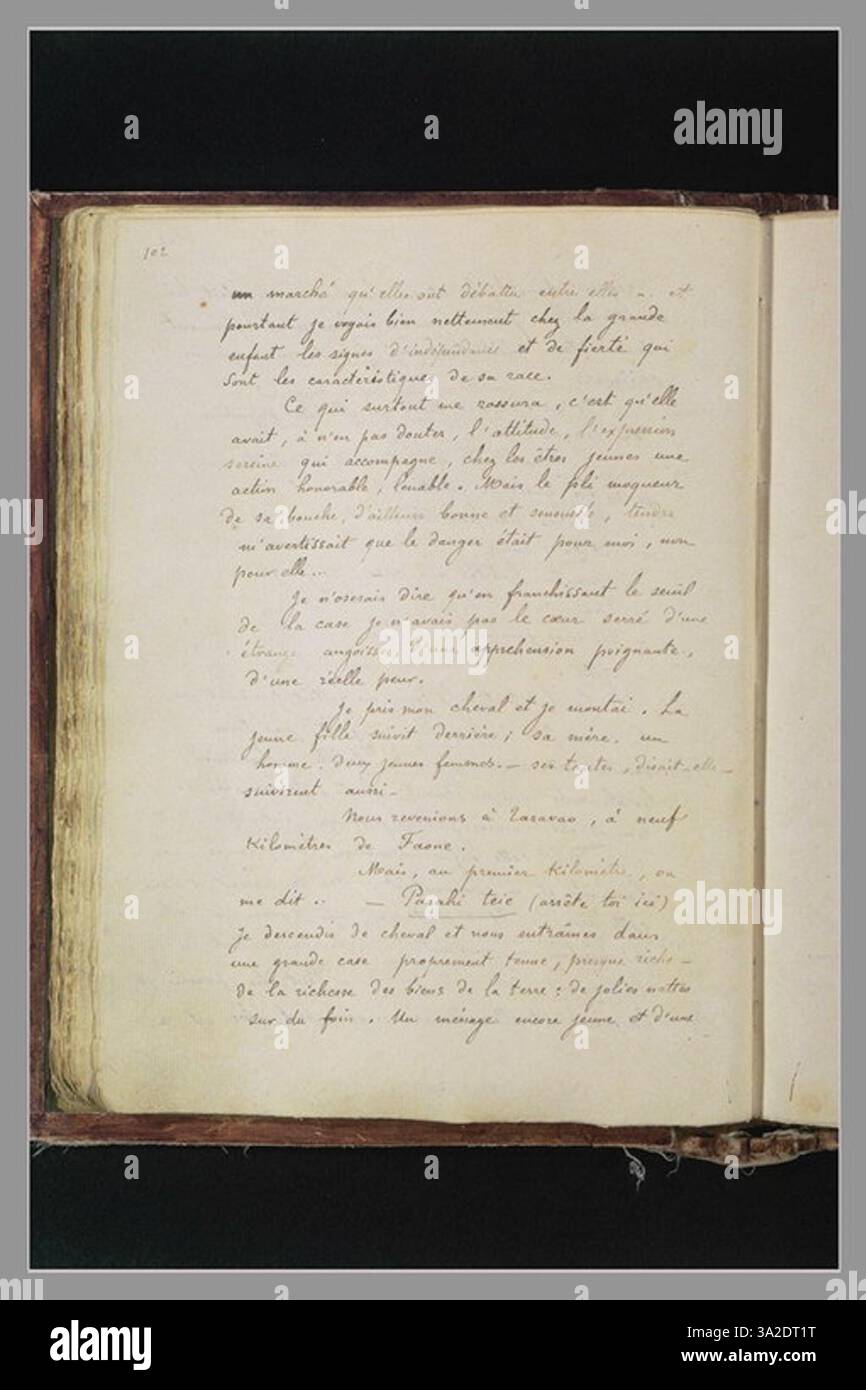 102
un marché qu'elles ont débattu entre elles – et
pourtant je voyais bien nettement chez la grande
enfant les signes d'indépendance et de fierté qui
sont les caractéristiques de sa race.
Ce qui surtout me rassura, c'est qu'elle
avait, à n'en pas douter, l'attitude, l'expression
sereine qui accompagne, chez les êtres jeunes une
action honorable, louable. Mais le pli moqueur
de sa bouche, d'ailleurs bonne et sensuelle, tendre
m'avertissait que le danger était pour moi, non
pour elle..
Je n'oserais dire qu'en franchissant le seuil
de la case je n'avais pas le cœur serré d'une
étrange angoisse, d'une appréhension poignante,
d'une réelle peur.
Je pris mon cheval et je montai. La
jeune fille suivit derrière; sa mère, un
homme, deux jeunes femmes – ses tantes, disait-elle –
suivirent aussi –
Nous revenions à Taravao, à neuf
Kilomètres de Faone.
Mais, au premier Kilomètre, on
me dit .. – Parahi teie (arrête toi ici)
Je descendis de cheval et nous entrâmes dans
une grande case proprement tenue, presque riche –
de la richesse des biens de la terre : de jolies nattes
sur du foin. Un ménage encore jeune et d'une
a
alamy
Image ID: 3A2DT1T
www.alamy.com